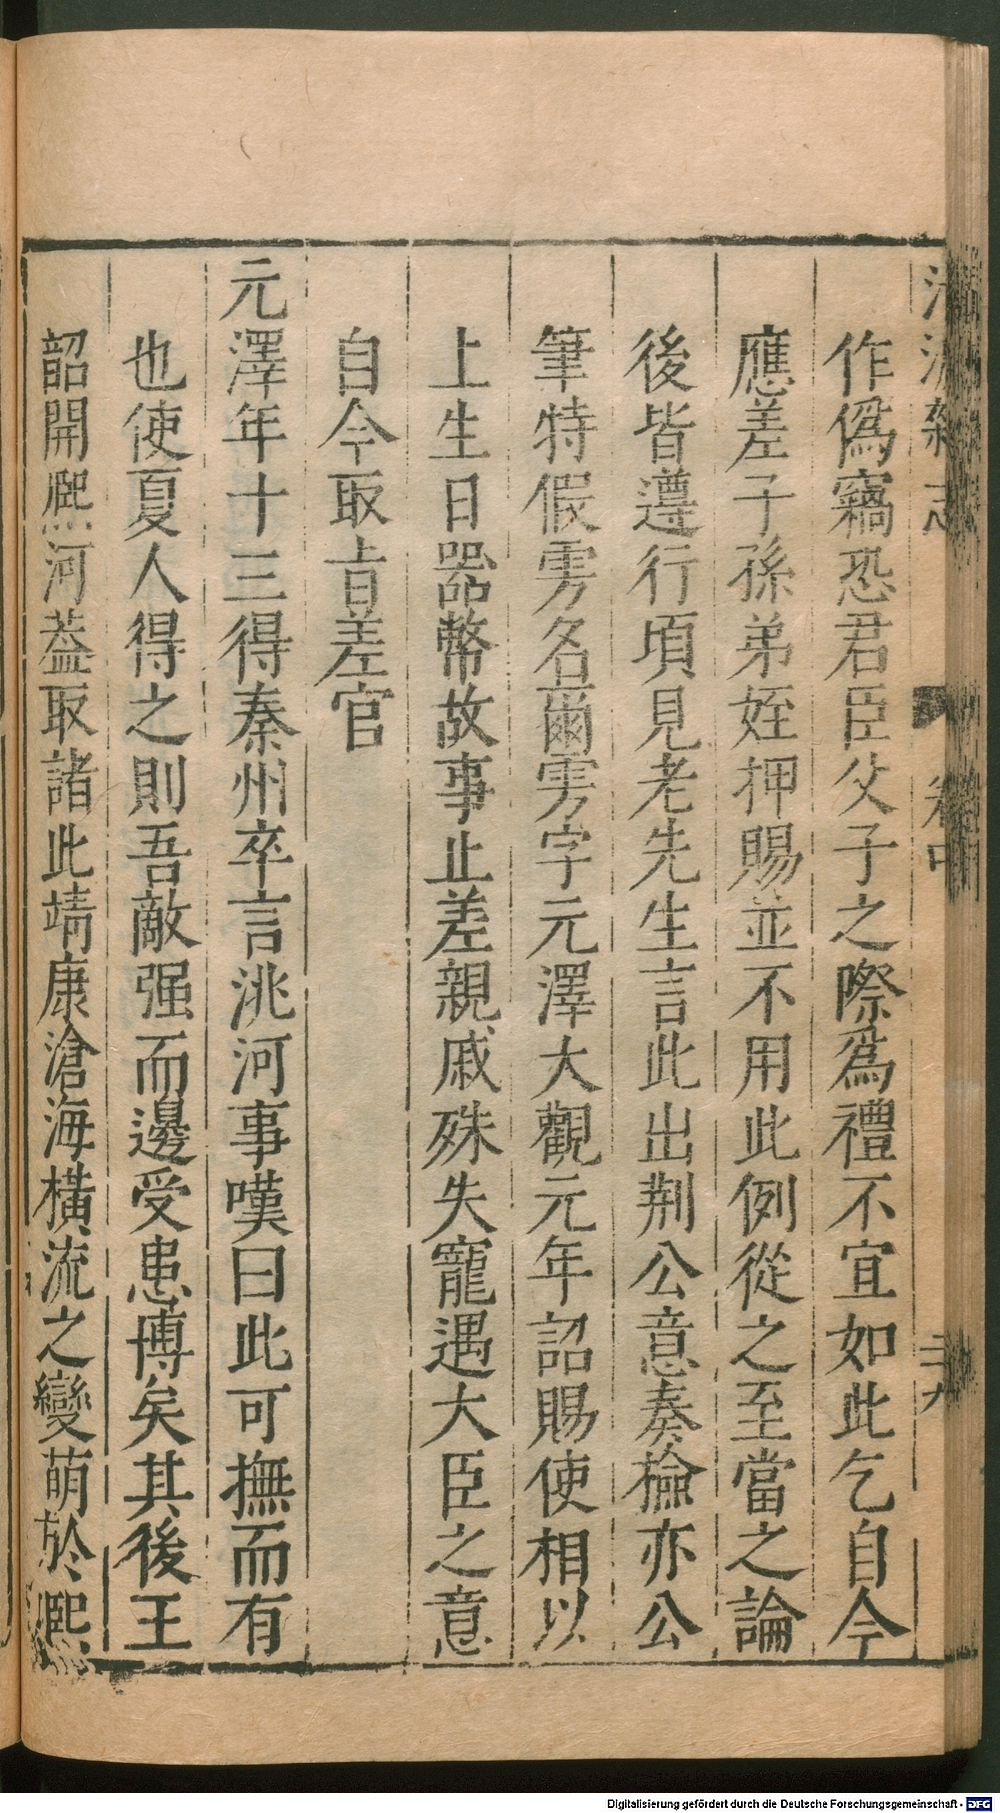 清波雜志 卷中 三九
作僞竊恐君臣父子之際爲禮不宜如此乞自今
應差子孫弟姪押賜並不用此例從之至當之論
後皆遵行頃見老先生言此出荆公意奏檢亦公
筆特假雱名爾雱字元澤大觀元年詔賜使相以
上生日器幣故事止差親戚殊失寵遇大臣之意
自今取㫖差官
元澤年十三得秦州卒言洮河事嘆曰此可撫而有
也使夏人得之則吾敵强而邊受患博矣其後王
韶開熈河葢取諸此靖康滄海橫流之變萌於熈
Digitalisierung gefördert durch die Deutsche Forschungsgemeinschaft - DFG